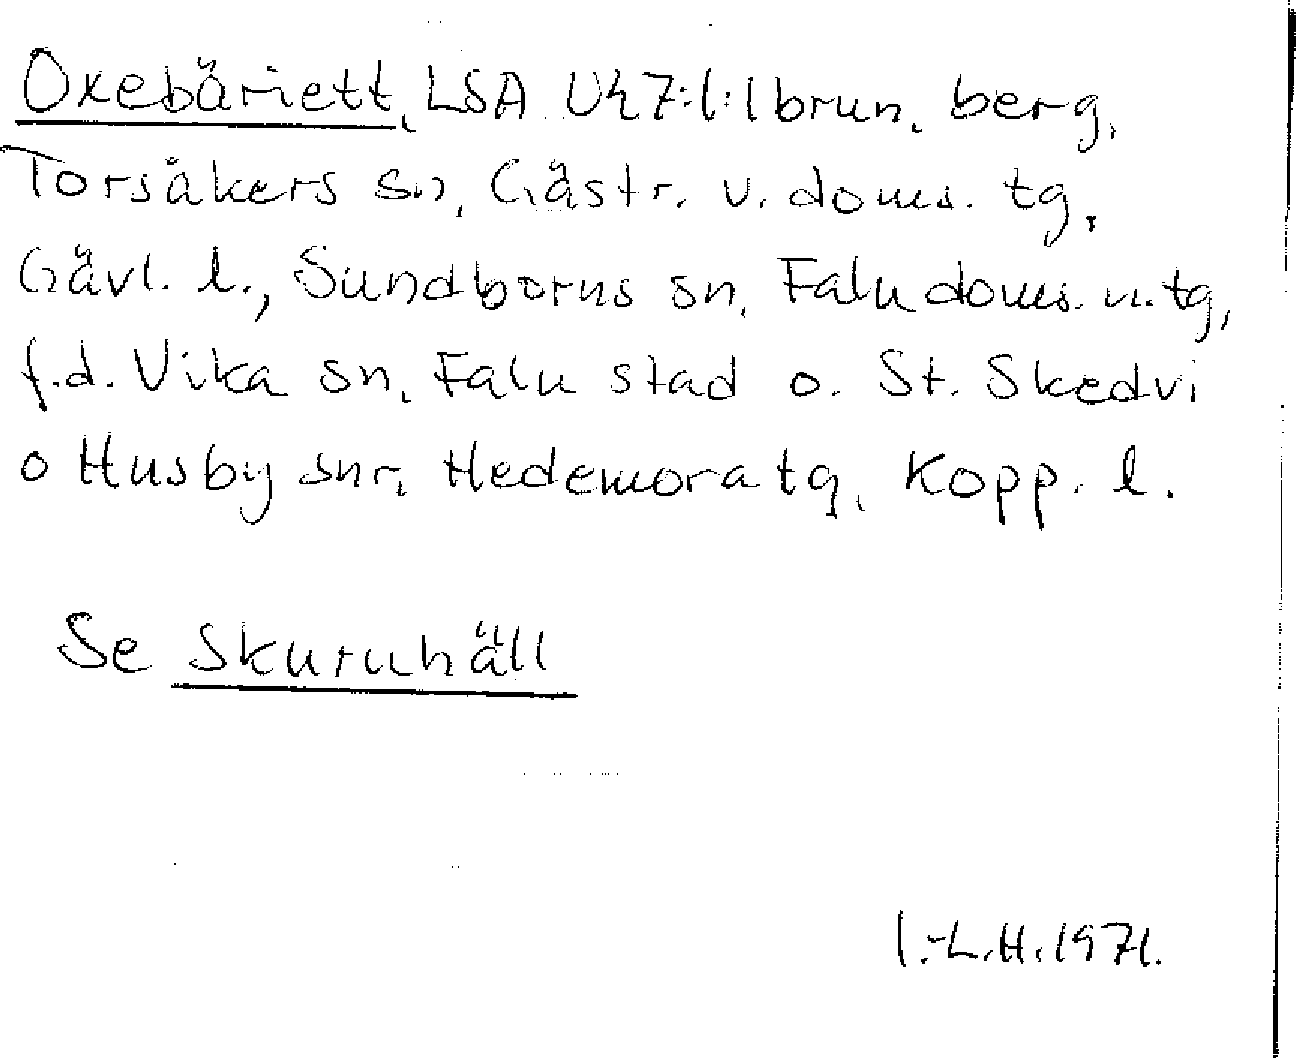 Oxebäriett, LSA U47:1:1 brun, berg,
Torsåkers sn, Gästr. v. doms. tg,
Gävl. l., Sundborns sn, Falu doms. n. tg,
f.d. Vika sn, Falu stad o. St. Skedvi
o Husby snr, Hedemora tg, Kopp. l.
Se Skuruhäll
I.-L.H. 1971.